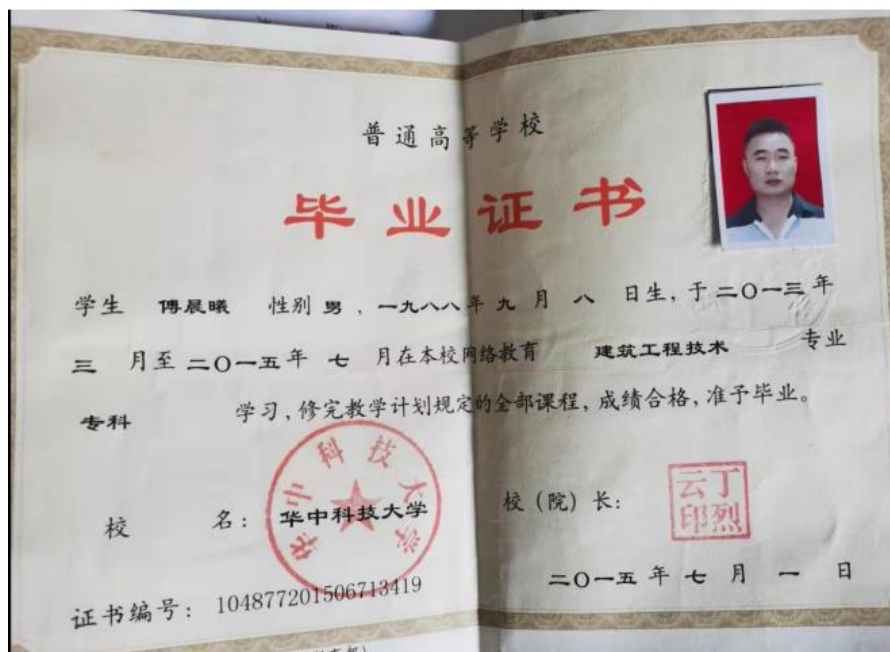 普通高等学校
毕业证书
学生 傅晨曦 性别 男，一九八八年 九 月 八 日生，于二〇一三年
三 月至 二〇一五年 七 月在本校网络教育 建筑工程技术 专业
专科 学习，修完教学计划规定的全部课程，成绩合格，准予毕业。
华中科技大学
校 名：华中科技大学 校（院）长：
丁烈云印
二〇一五 年 七 月 一 日
证书编号：104877201506713419